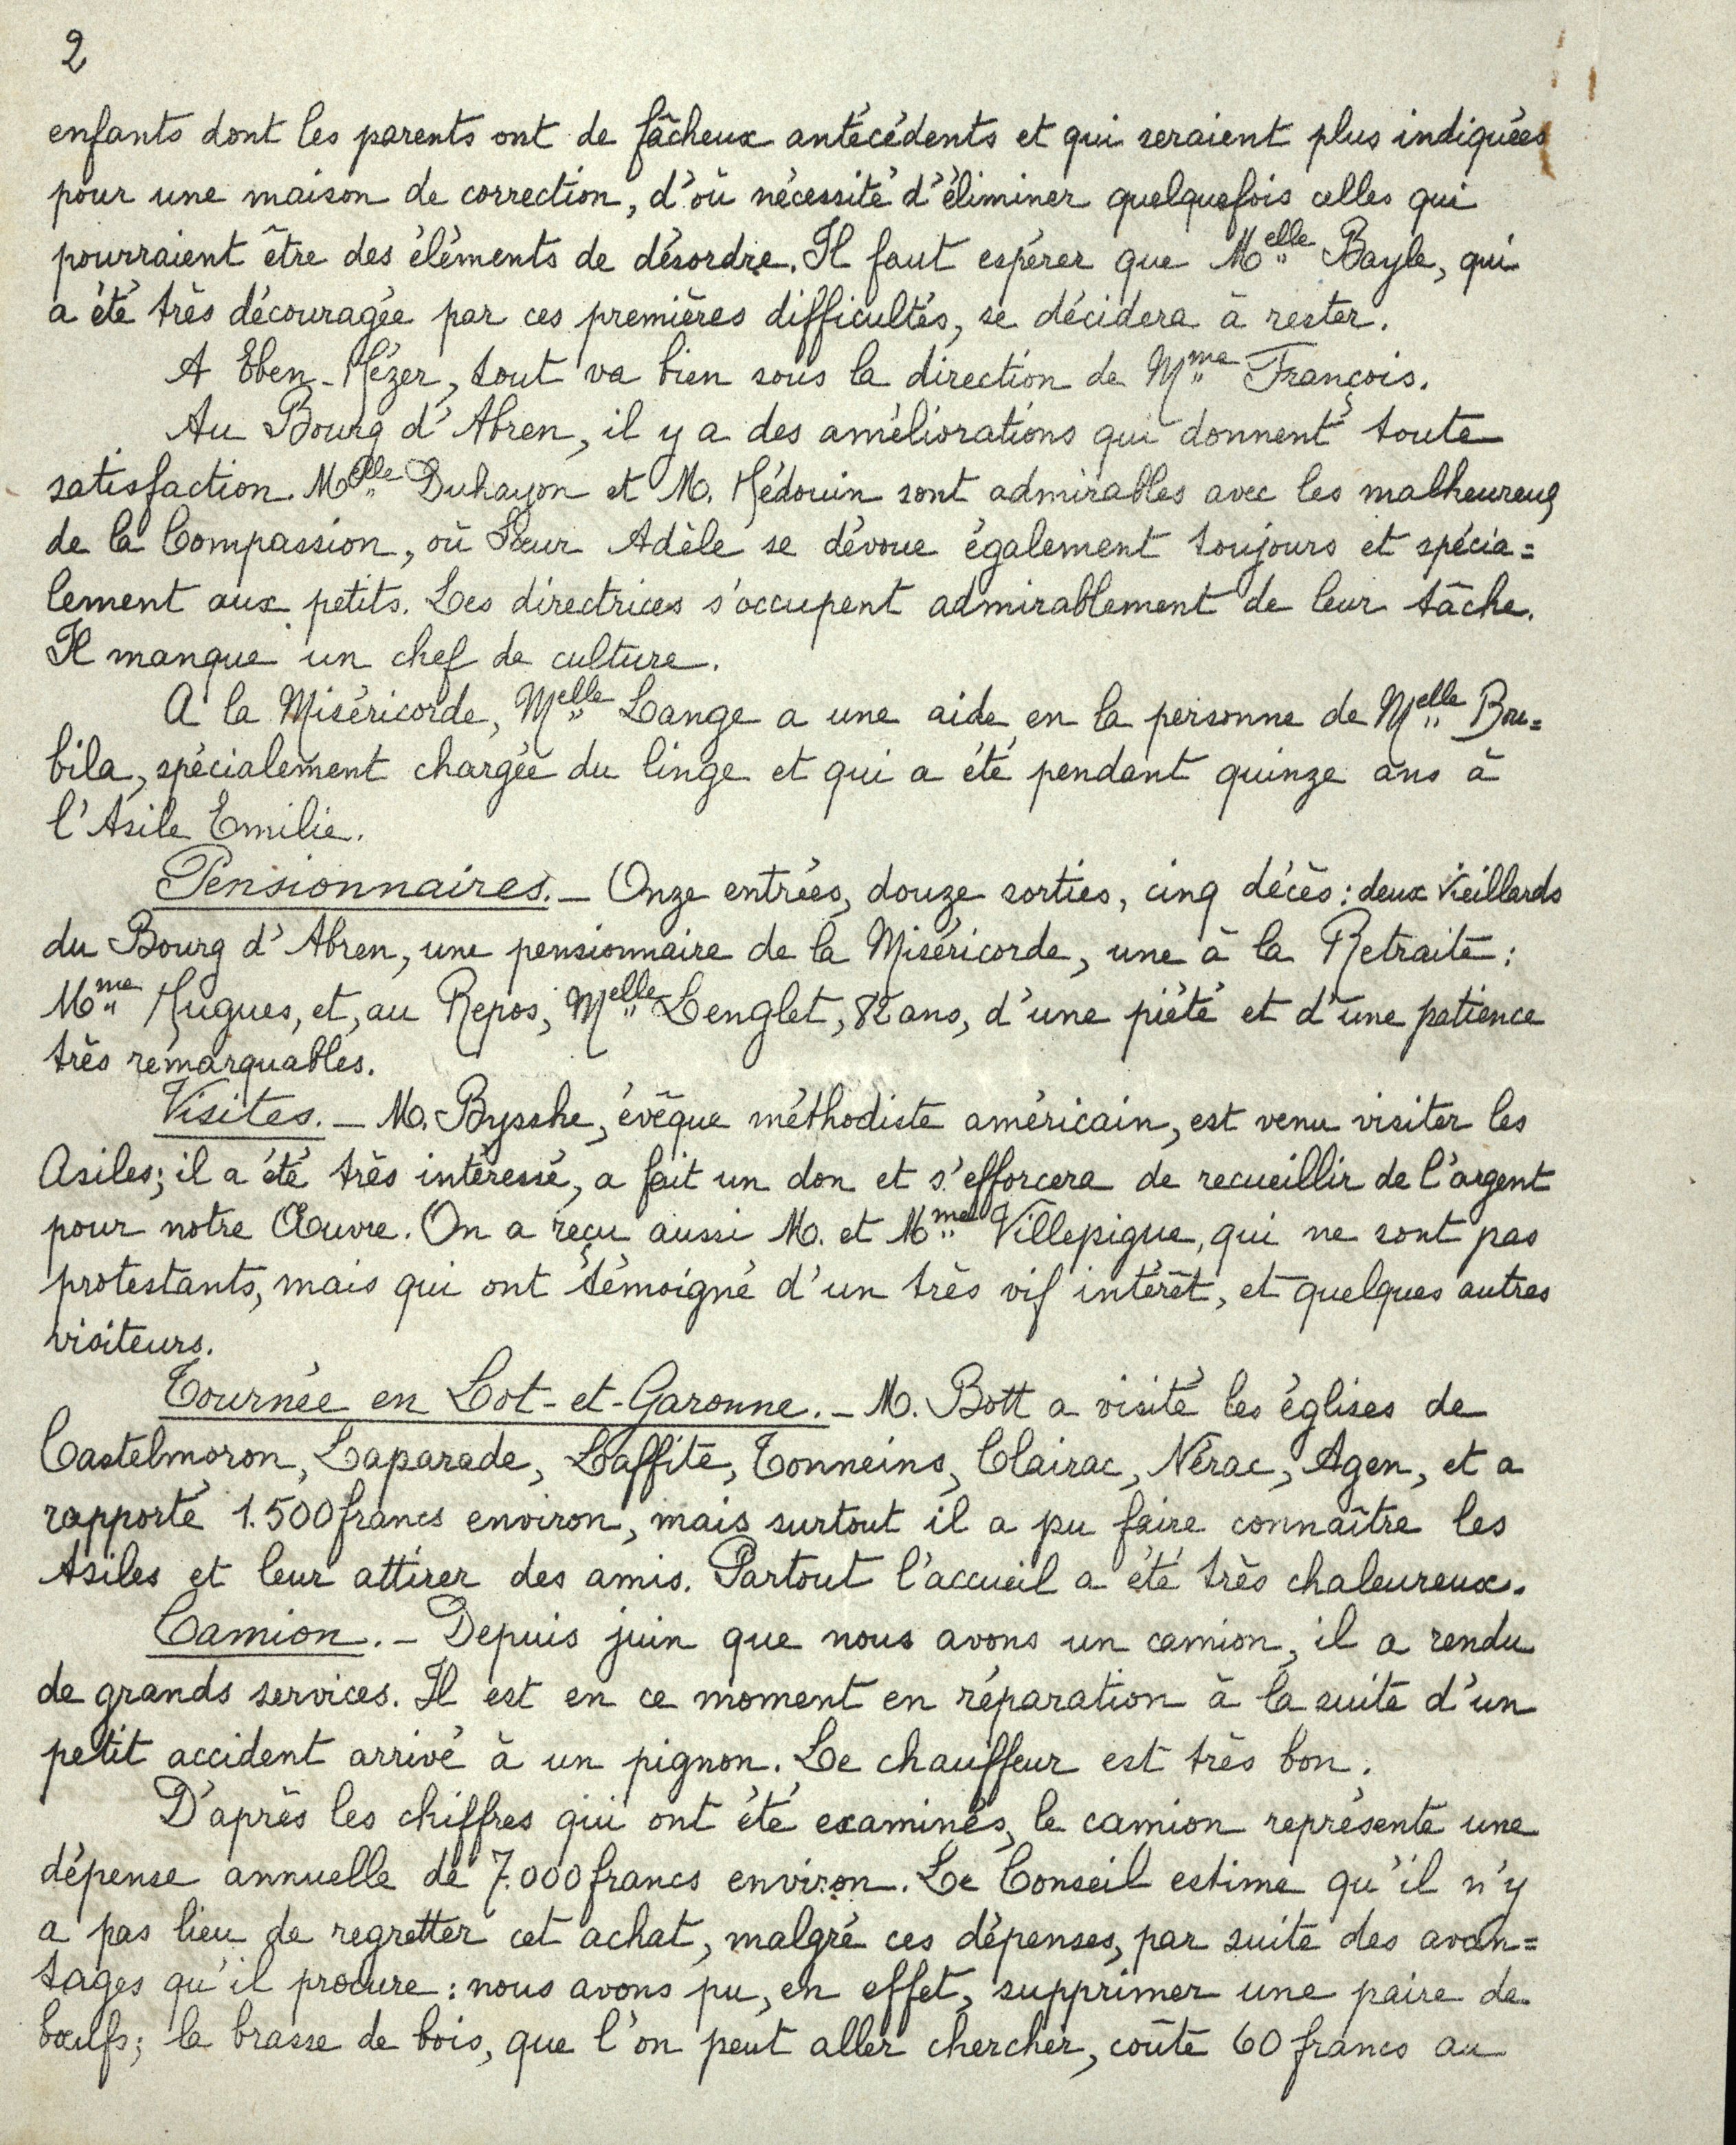 2
enfants dont les parents ont de fâcheux antécédents et qui seraient plus indiquées
pour une maison de correction, d'où nécessité d'éliminer quelquefois celles qui
pourraient être des éléments de désordre. Il faut espérer que Melle Bayle, qui
a été très découragée par ces premières difficultés, se décidera à rester.
A Eben-Hézer, tout va bien sous la direction de Mme François.
Au Bourg d'Abren, il y a des améliorations qui donnent toute
satisfaction. Melle Duhayon et M. Hédouin sont admirables avec les malheureux
de la Compassion, où Sœur Adèle se dévoue également toujours et spécia=
lement aux petits. Les directrices s'occupent admirablement de leur tâche.
Il manque un chef de culture.
A la Miséricorde, Melle Lange a une aide en la personne de Melle Bou=
bila, spécialement chargée du linge et qui a été pendant quinze ans à
l'Asile Emilie.
Pensionnaires. — Onze entrées, douze sorties, cinq décès : deux vieillards
du Bourg d'Abren, une pensionnaire de la Miséricorde, une à la Retraite :
Mme Hugues, et, au Repos, Melle Lenglet, 82 ans, d'une piété et d'une patience
très remarquables.
Visites. — M. Bysshe, évêque méthodiste américain, est venu visiter les
Asiles; il a été très intéressé, a fait un don et s'efforcera de recueillir de l'argent
pour notre Œuvre. On a reçu aussi M. et Mme Villepigue, qui ne sont pas
protestants, mais qui ont témoigné d'un très vif intérêt, et quelques autres
visiteurs.
Tournée en Lot-et-Garonne. — M. Bott a visité les églises de
Castelmoron, Laparade, Laffite, Tonneins, Clairac, Nérac, Agen, et a
rapporté 1.500 francs environ, mais surtout il a pu faire connaître les
Asiles et leur attirer des amis. Partout l'accueil a été très chaleureux.
Camion. — Depuis juin que nous avons un camion, il a rendu
de grands services. Il est en ce moment en réparation à la suite d'un
petit accident arrivé à un pignon. Le chauffeur est très bon.
D'après les chiffres qui ont été examinés, le camion représente une
dépense annuelle de 7.000 francs environ. Le Conseil estime qu'il n'y
a pas lieu de regretter cet achat, malgré ces dépenses, par suite des avan=
tages qu'il procure : nous avons pu, en effet, supprimer une paire de
bœufs; la brasse de bois, que l'on peut aller chercher, coûte 60 francs au